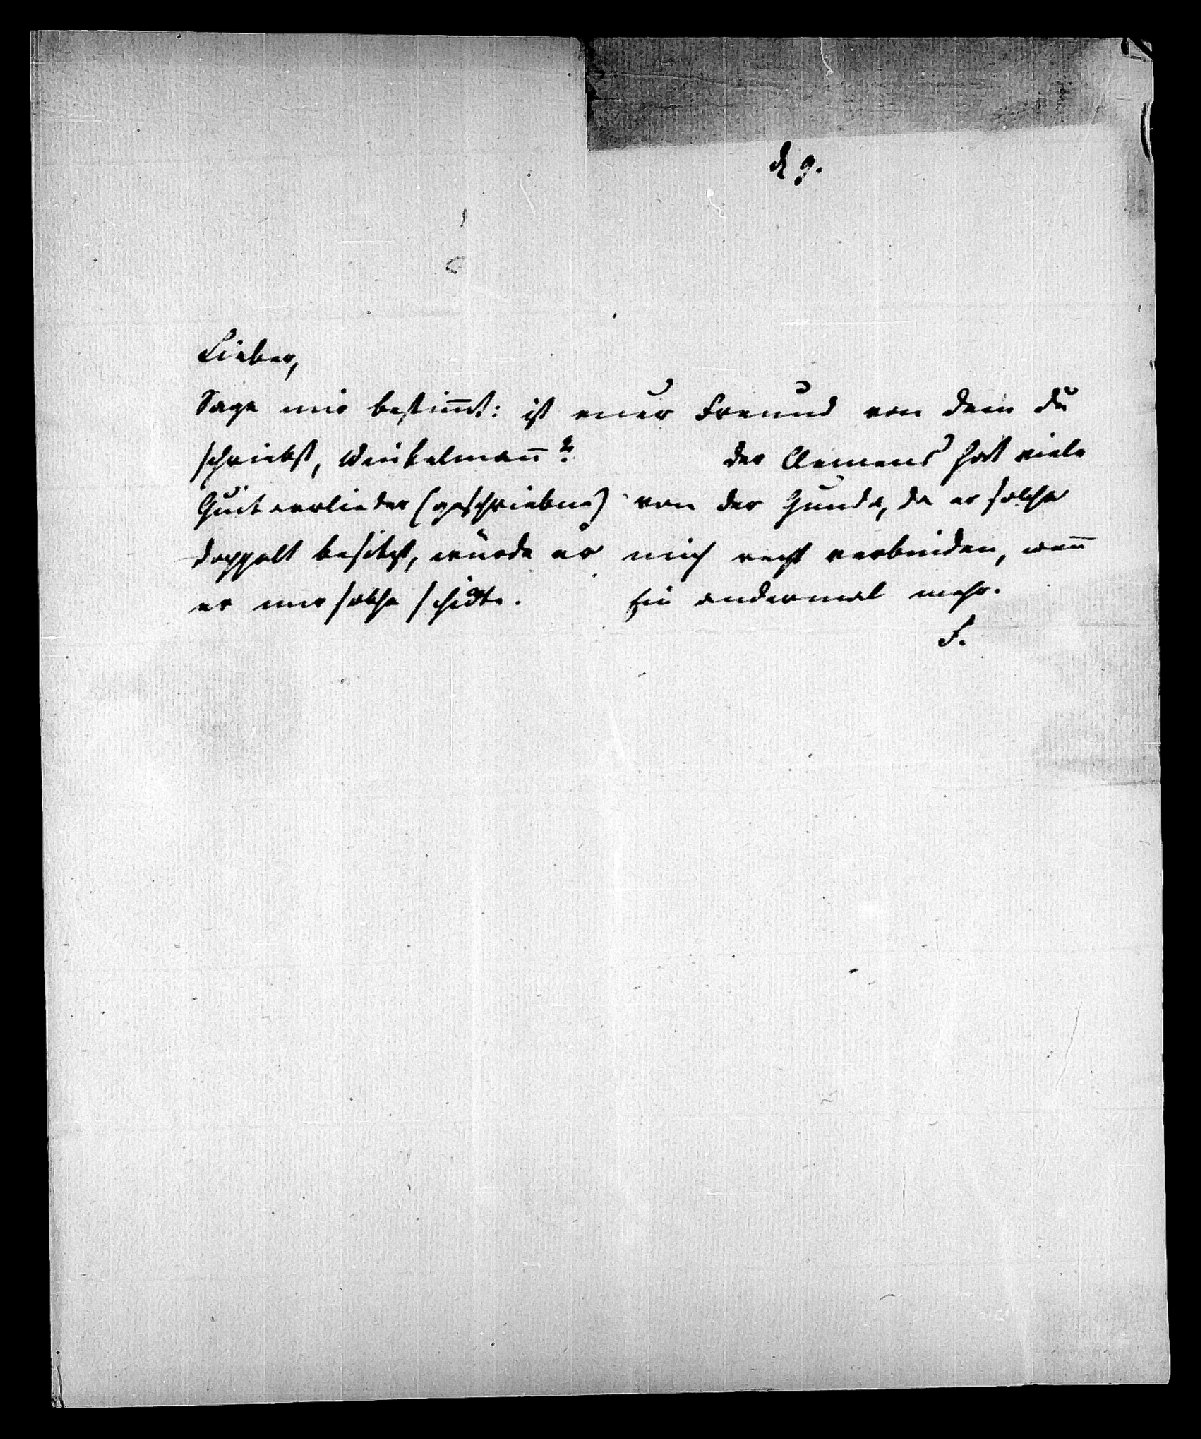 d 9.
Lieber,
Sage mir bestim̄t: ist euer Freund von dem du
schriebst, Winkelman̄?   der Clemens hat viele
Guitarrlieder (geschriebne) von der Gunda, da er solche
doppelt besitzt, würde er mich recht verbinden, wen̄
er mir solche schickte.   Ein andermal mehr.
F.